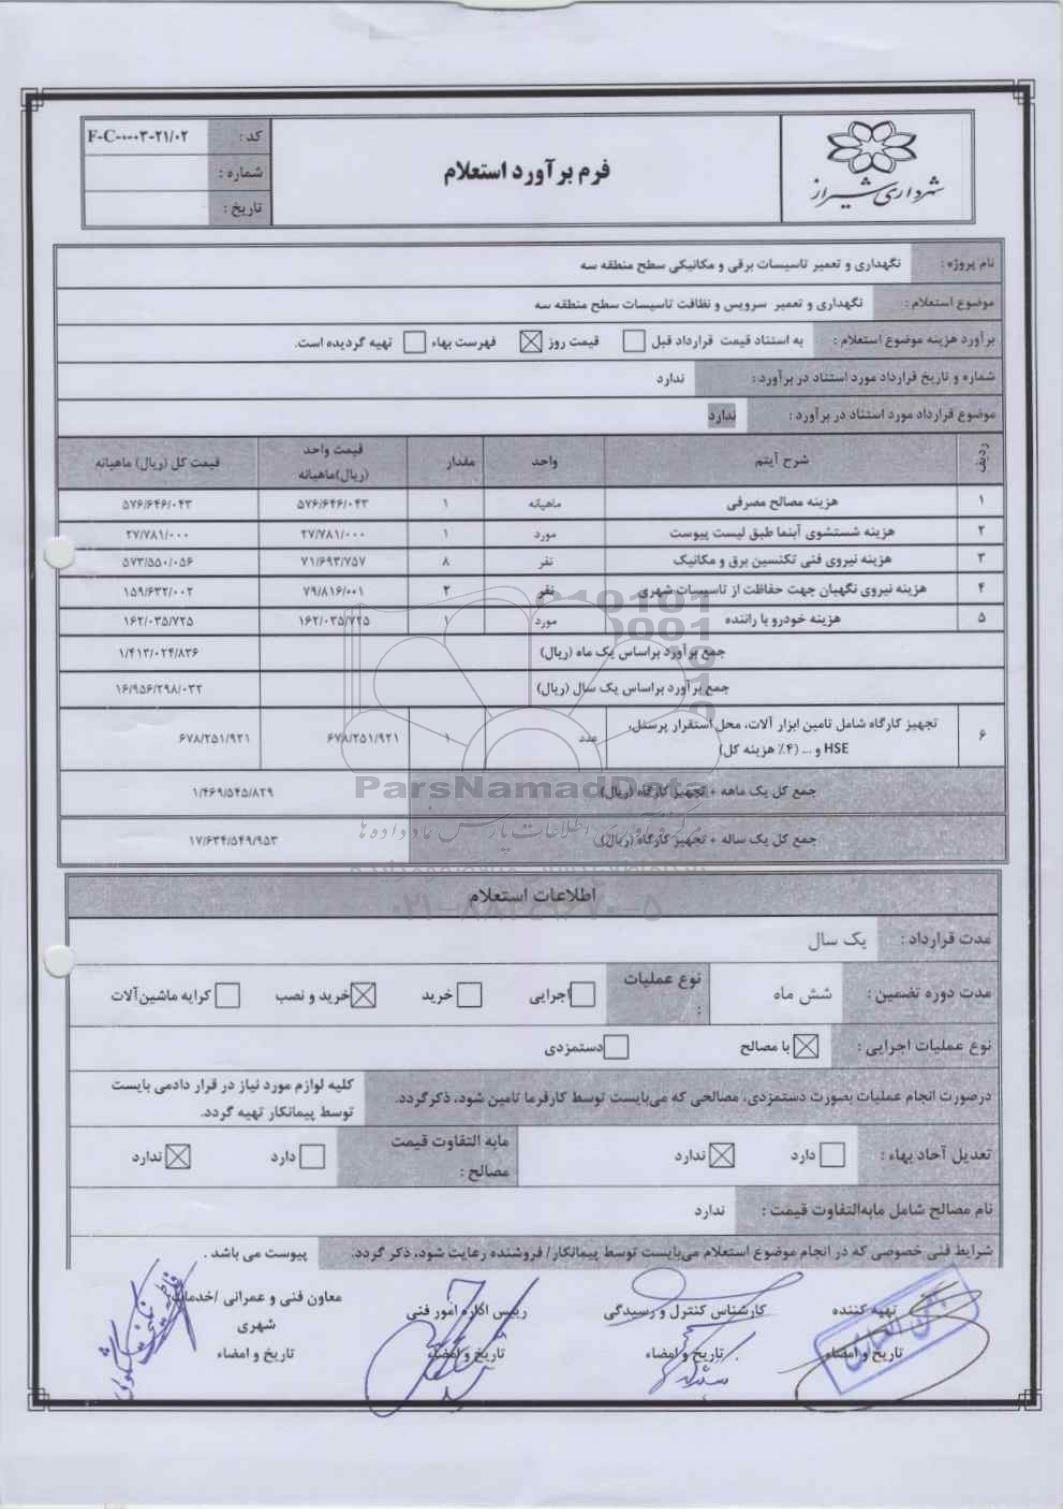 شهرداری شیراز
فرم برآورد استعلام
کد : F-C-۰۰۰۳-۲۱/۰۲
شماره :
تاریخ :
نام پروژه : نگهداری و تعمیر تاسیسات برقی و مکانیکی سطح منطقه سه
موضوع استعلام : نگهداری و تعمیر سرویس و نظافت تاسیسات سطح منطقه سه
برآورد هزینه موضوع استعلام : به استناد قیمت قرارداد قبل ☐ قیمت روز ☒ فهرست بهاء ☐ تهیه گردیده است.
شماره و تاریخ قرارداد مورد استناد در برآورد : ندارد
موضوع قرارداد مورد استناد در برآورد : ندارد
ردیف شرح آیتم واحد مقدار قیمت واحد (ریال)ماهیانه قیمت کل (ریال) ماهیانه
۱ هزینه مصالح مصرفی ماهیانه ۱ ۵۷۶/۶۴۶/۰۴۳ ۵۷۶/۶۴۶/۰۴۳
۲ هزینه شستشوی آبنما طبق لیست پیوست مورد ۱ ۲۷/۷۸۱/۰۰۰ ۲۷/۷۸۱/۰۰۰
۳ هزینه نیروی فنی تکنسین برق و مکانیک نفر ۸ ۷۱/۶۹۳/۷۵۷ ۵۷۳/۵۵۰/۰۵۶
۴ هزینه نیروی نگهبان جهت حفاظت از تاسیسات شهری نفر ۲ ۷۹/۸۱۶/۰۰۱ ۱۵۹/۶۳۲/۰۰۲
۵ هزینه خودرو با راننده مورد ۱ ۱۶۲/۰۳۵/۷۲۵ ۱۶۲/۰۳۵/۷۲۵
جمع برآورد براساس یک ماه (ریال) ۱/۴۱۳/۰۲۴/۸۳۶
جمع برآورد براساس یک سال (ریال) ۱۶/۹۵۶/۲۹۸/۰۳۲
۶ تجهیز کارگاه شامل تامین ابزار آلات، محل استقرار پرسنل، HSE و ... (۴٪ هزینه کل) عدد ۱ ۶۷۸/۲۵۱/۹۲۱ ۶۷۸/۲۵۱/۹۲۱
جمع کل یک ماهه + تجهیز کارگاه (ریال) ۱/۴۶۹/۵۴۵/۸۲۹
جمع کل یک ساله + تجهیز کارگاه (ریال) ۱۷/۶۳۴/۵۴۹/۹۵۳
ParsNamadData
۰۲۱-۸۸۳۴۹۶۷۰-۵
اطلاعات استعلام
مدت قرارداد : یک سال
مدت دوره تضمین : شش ماه نوع عملیات : ☐ اجرایی ☐ خرید ☒ خرید و نصب ☐ کرایه ماشین‌آلات
نوع عملیات اجرایی : ☒ با مصالح ☐ دستمزدی
درصورت انجام عملیات بصورت دستمزدی، مصالحی که می‌بایست توسط کارفرما تامین شود، ذکرگردد. کلیه لوازم مورد نیاز در قرار دادمی بایست
توسط پیمانکار تهیه گردد.
تعدیل آحاد بهاء : ☐ دارد ☒ ندارد مابه التفاوت قیمت مصالح : ☐ دارد ☒ ندارد
نام مصالح شامل مابه‌التفاوت قیمت : ندارد
شرایط فنی خصوصی که در انجام موضوع استعلام می‌بایست توسط پیمانکار/ فروشنده رعایت شود، ذکر گردد. پیوست می باشد .
تهیه کننده کارشناس کنترل و رسیدگی رییس اداره امور فنی معاون فنی و عمرانی /خدمات
شهری
تاریخ و امضاء تاریخ و امضاء تاریخ و امضاء تاریخ و امضاء